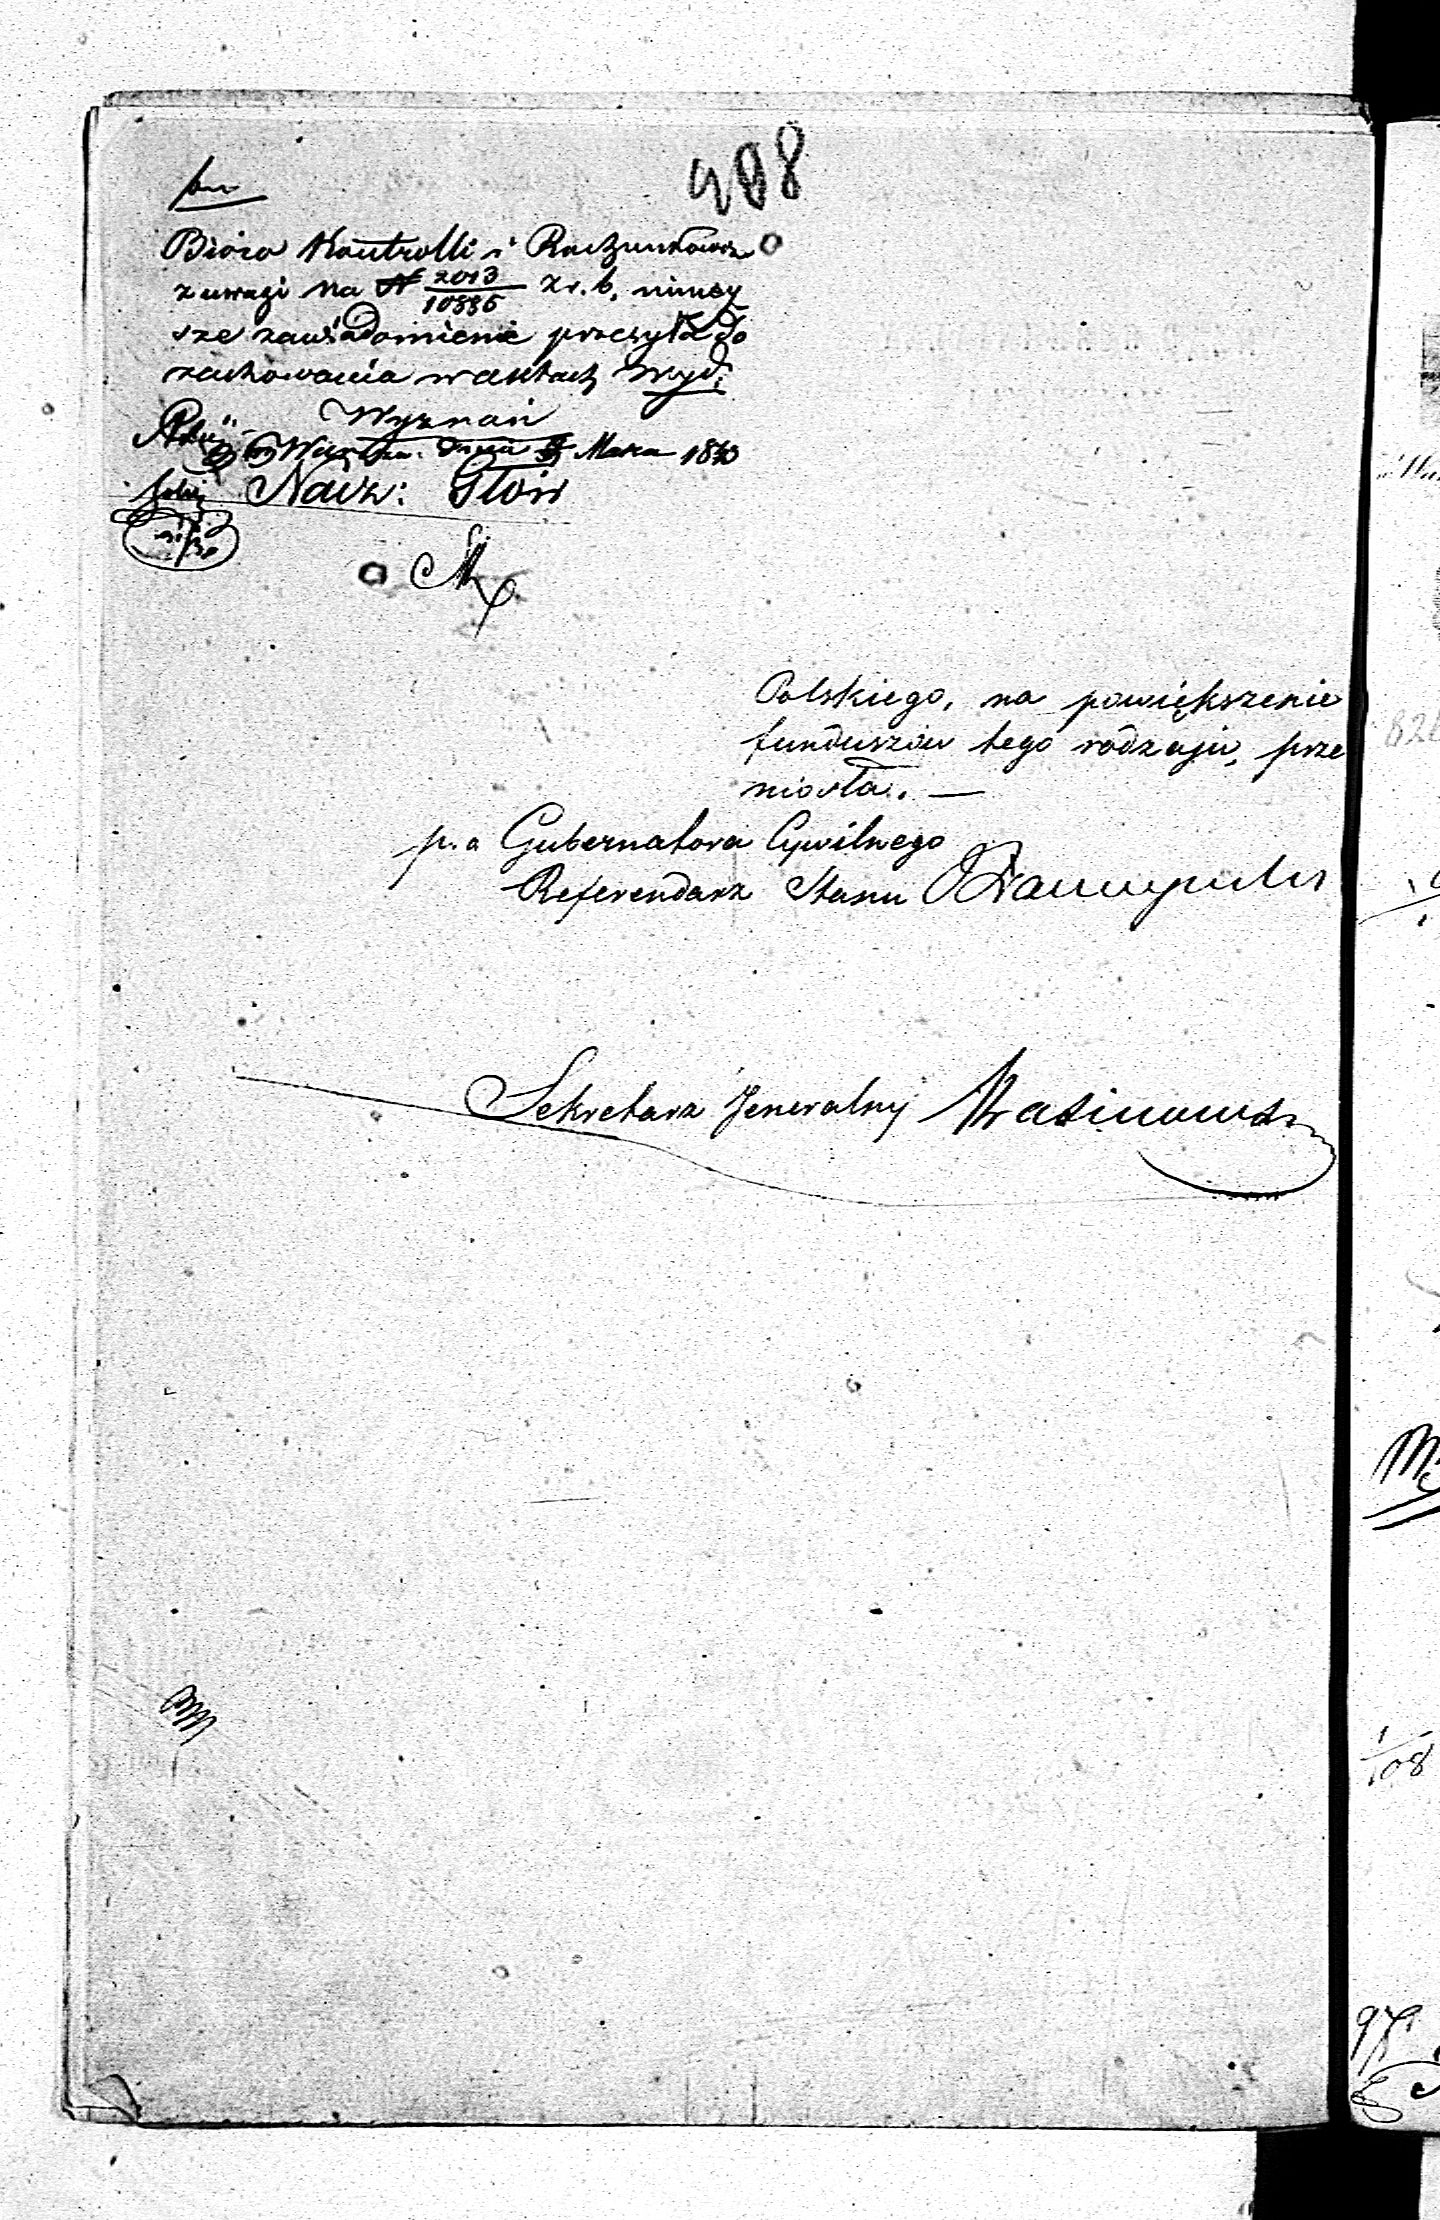 408
Bióro Kontrolli i Rachunkow:
z uwagi na N 2013/10886 z r. b. niniey
sze zawiadomienie przesyła do
zachowania w aktach Wyd:
Wyznań
Warsza. dnia Marca
Nacz: Głów
Polskiego, na powiększenie
funduszów tego rodzaju, prze
niosła. —
p. o Gubernatora Cywilnego
Referendarz Stanu
Sekretarz Jeneralny